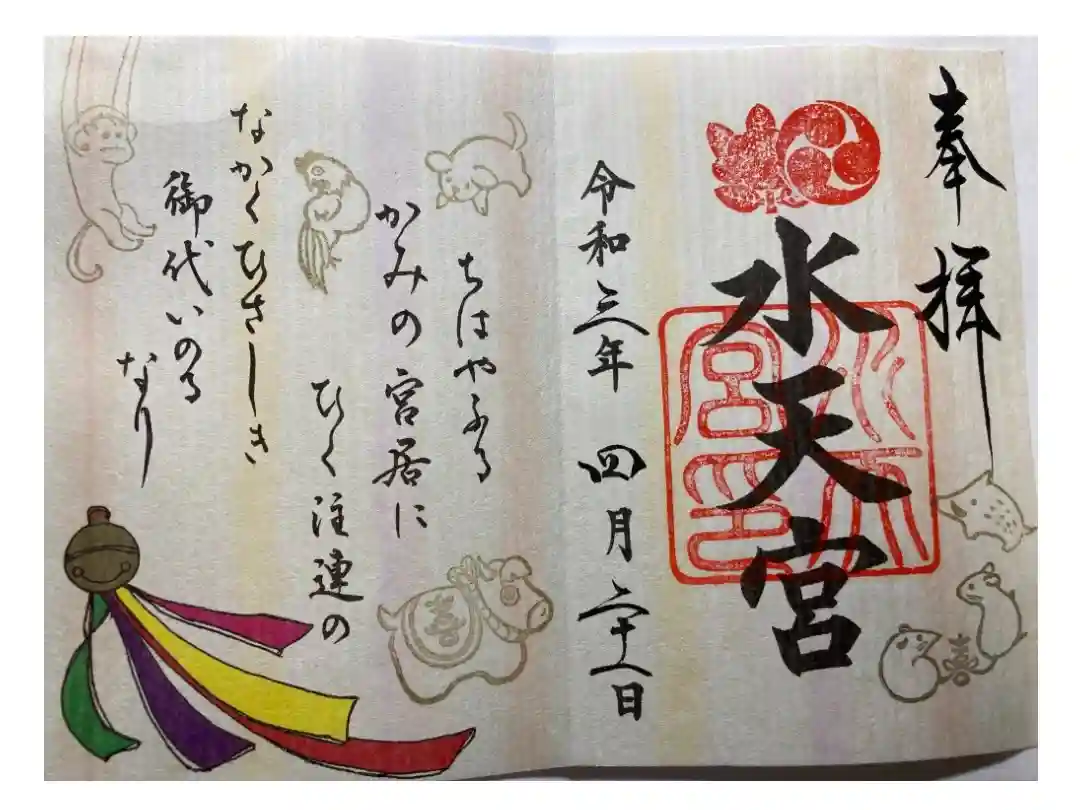 奉拝
水天宮
令和三年 四月二十一日
ちはやふる
かみの宮居に
ひく注連の
なかくひさしき
御代いのる
なり
宮水
印天
喜
喜